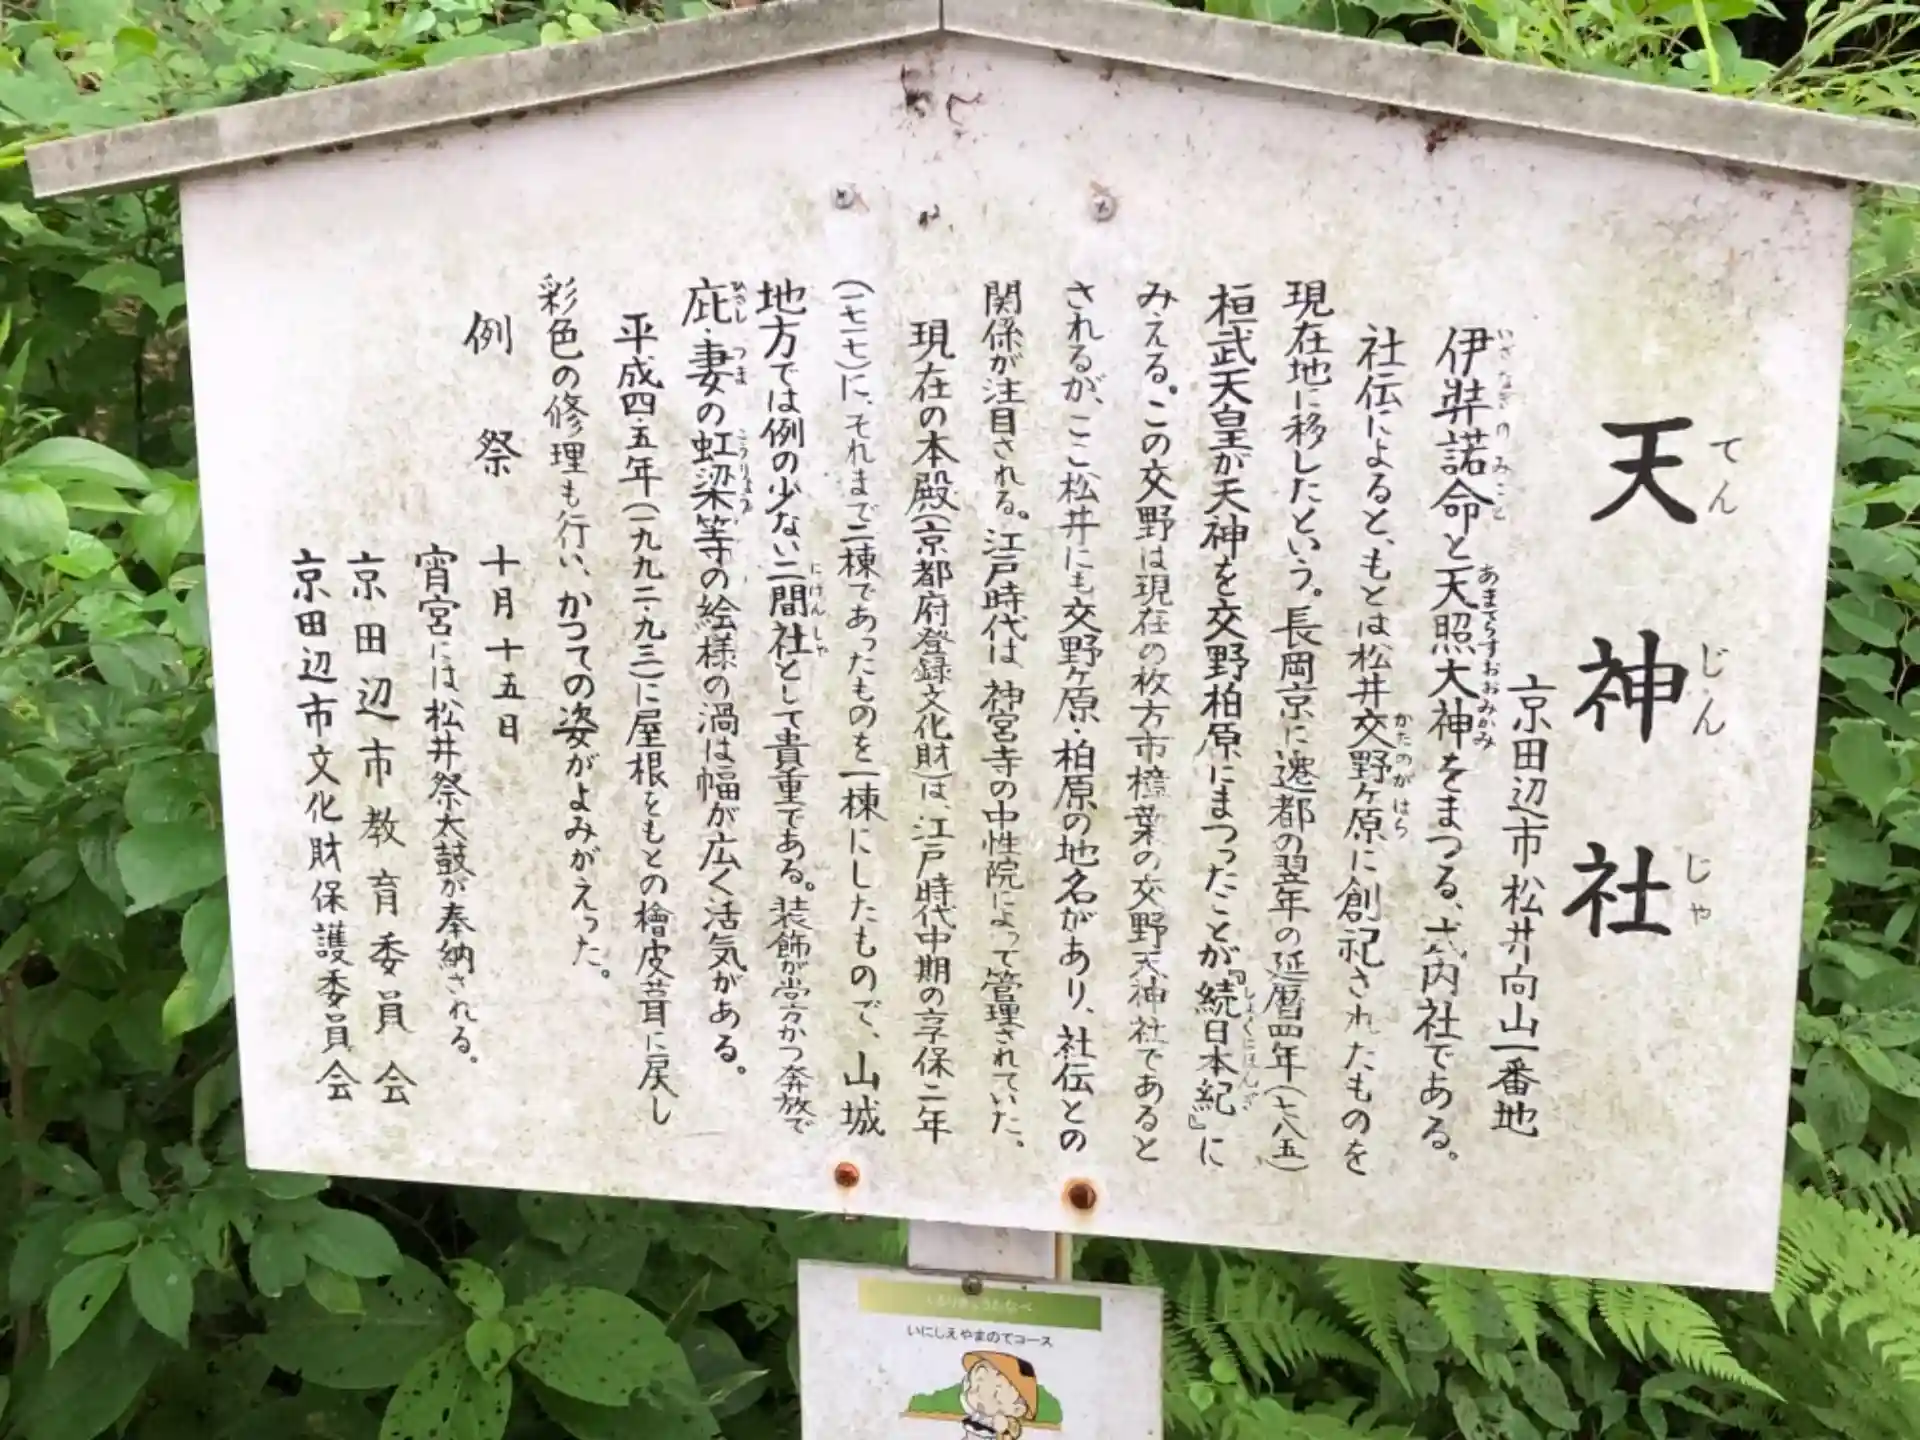 天神社
てんじんじゃ
京田辺市松井向山一番地
伊弉諾命と天照大神をまつる、式内社である。
いざなぎのみこと
あまてらすおおみかみ
社伝によると、もとは松井交野ヶ原に創祀されたものを
かたのがはら
現在地に移したという。長岡京に遷都の翌年の延暦四年(七八五)
桓武天皇が天神を交野柏原にまつったことが『続日本紀』に
しょくにほんぎ
みえる。この交野は現在の枚方市樟葉の交野天神社であると
されるが、ここ松井にも交野ヶ原・柏原の地名があり、社伝との
関係が注目される。江戸時代は神宮寺の中性院によって管理されていた。
現在の本殿(京都府登録文化財)は、江戸時代中期の享保二年
(一七一七)に、それまで二棟であったものを一棟にしたもので、山城
地方では例の少ない二間社として貴重である。装飾が堂々かつ奔放で
にけんしゃ
庇・妻の虹梁等の絵様の渦は幅が広く活気がある。
ひさし
つま
こうりょう
平成四・五年(一九九二・九三)に屋根をもとの檜皮葺に戻し
彩色の修理も行い、かつての姿がよみがえった。
例祭 十月十五日
宵宮には松井祭太鼓が奉納される。
京田辺市教育委員会
京田辺市文化財保護委員会
いにしえやまのてコース